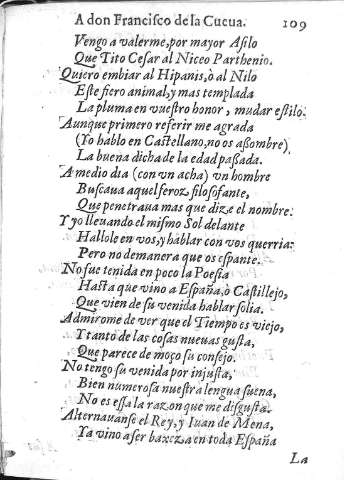 A don Francisco de la Cueua. 109
Vengo a valerme, por mayor Asilo
Que Tito Cesar al Niceo Parthenio.
Quiero embiar al Hipanis, ò al Nilo
Este fiero animal, y mas templada
La pluma en vuestro honor, mudar estilo.
Aunque primero referir me agrada
(Yo hablo en Castellano, no os assombre)
La buena dicha de la edad passada.
A medio dia (con vn acha) vn hombre
Buscaua aquel feroz filosofante,
Que penetraua mas que dize el nombre.
Y yo lleuando el mismo Sol delante
Hallole en vos, y hablar con vos querria:
Pero no demanera que os espante.
No fue tenida en poco la Poesia
Hasta que vino a España, ò Castillejo,
Que vien de su venida hablar solia.
Admirome de ver que el Tiempo es viejo,
Y tanto de las cosas nueuas gusta,
Que parece de moço su consejo.
No tengo su venida por injusta,
Bien numerosa nuestra lengua suena,
No es essa la razon que me disgusta.
Alternauanse el Rey, y Iuan de Mena,
Ya vino a ser baxeza en toda España
La